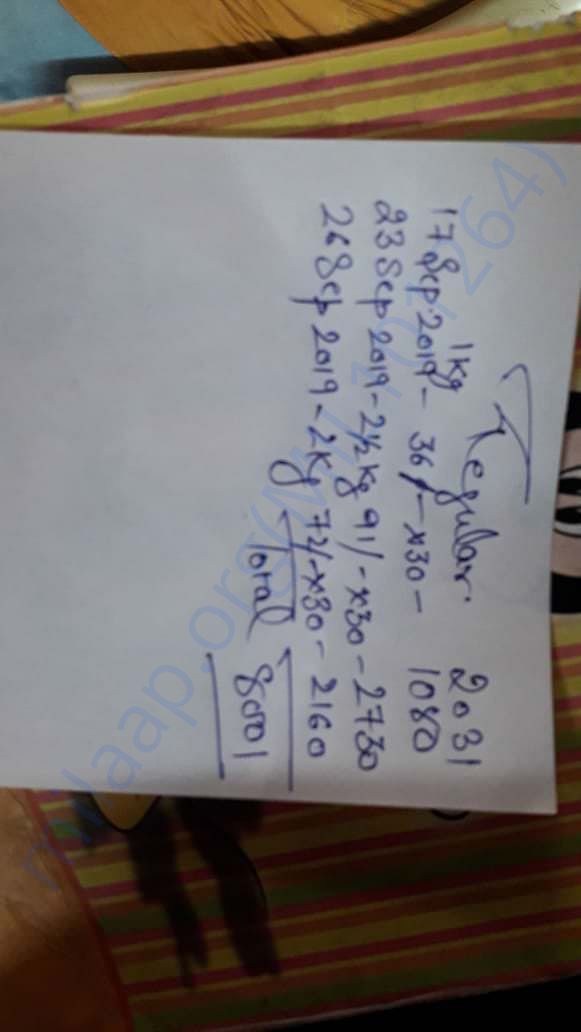 Regular. 2031
17 Sep. 2019 - 1 kg 36/- x30 - 1080
23 Sep 2019 - 2 1/2 kg 91/- x30 - 2730
26 Sep 2019 - 2kg 72/- x30 - 2160
Total 8001
milaap.org